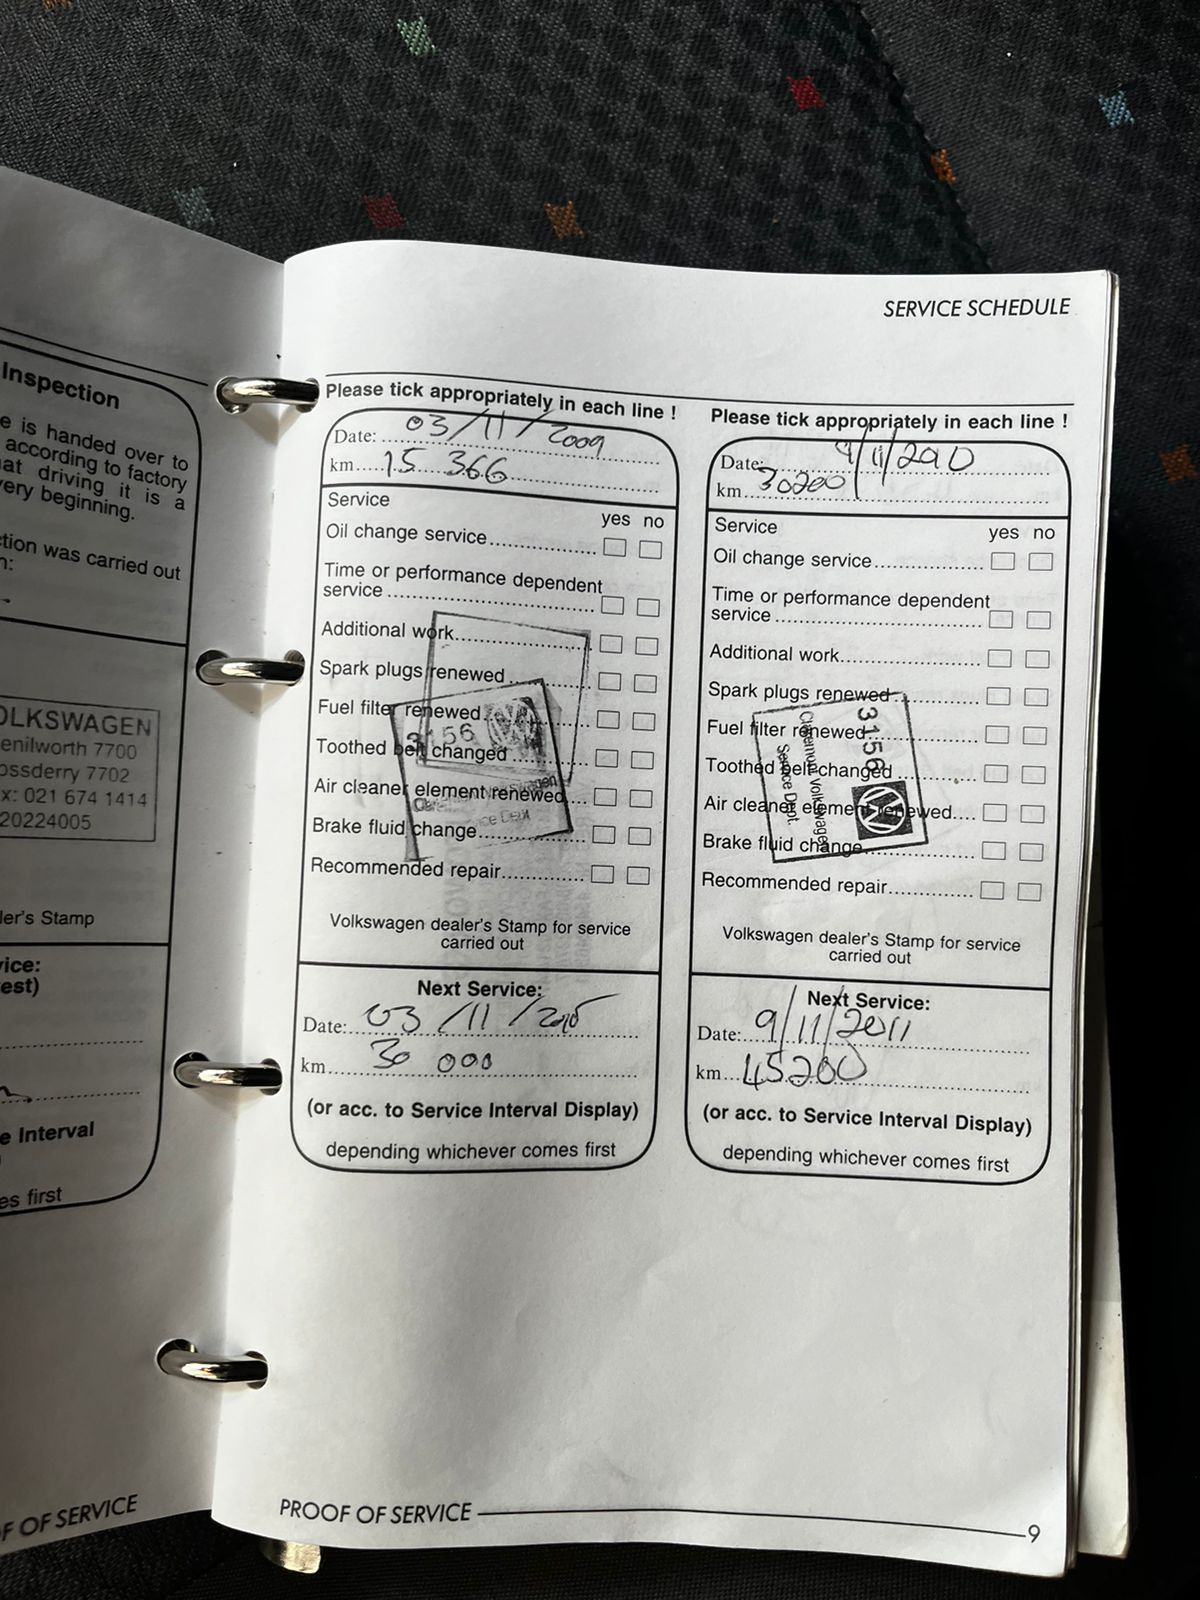 Inspection
e is handed over to
according to factory
at driving it is a
very beginning.
ction was carried out
n:
OLKSWAGEN
enilworth 7700
ossderry 7702
x: 021 674 1414
20224005
ler's Stamp
vice:
est)
e Interval
es first
F OF SERVICE
SERVICE SCHEDULE
Please tick appropriately in each line !
Date: 03/11/2009
km 15 366
Service
yes no
Oil change service
Time or performance dependent
service
Additional work
Spark plugs renewed
Fuel filter renewed
Toothed belt changed
Air cleaner element renewed
Brake fluid change
Recommended repair
3156
Service Dept
Volkswagen dealer's Stamp for service
carried out
Next Service:
Date: 03/11/2010
km 30 000
(or acc. to Service Interval Display)
depending whichever comes first
Please tick appropriately in each line !
Date: 9/11/2010
km 30200
Service
yes no
Oil change service
Time or performance dependent
service
Additional work
Spark plugs renewed
Fuel filter renewed
Toothed belt changed
Air cleaner element renewed
Brake fluid change
Recommended repair
3156
Claremont Volkswagen
Service Dept
Volkswagen dealer's Stamp for service
carried out
Next Service:
Date: 9/11/2011
km 45200
(or acc. to Service Interval Display)
depending whichever comes first
PROOF OF SERVICE
9